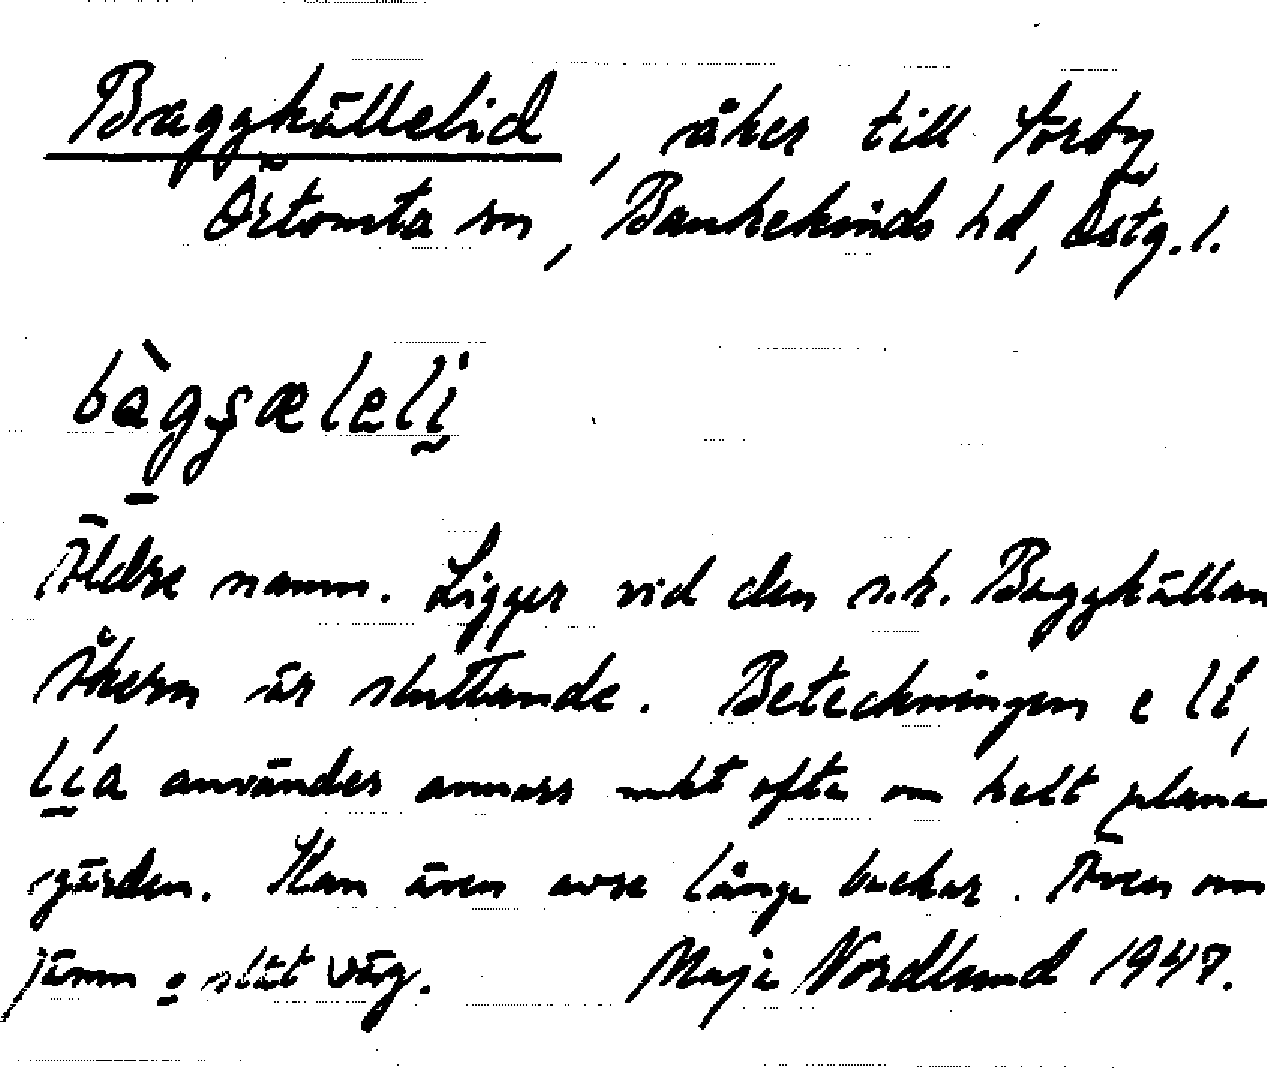 Baggkällelid, åker till Torby
Örtomta sn, Bankekinds hd, Östg. l.
bàggæleli
Äldre namn. Ligger vid den s.k. Baggkällan
Åkern är sluttande. Beteckningen e li,
lia användes annars mkt ofta om helt plana
gärden. Kan även avse långa backar. Även om
jämn o slät väg. Maja Nordlund 1947.